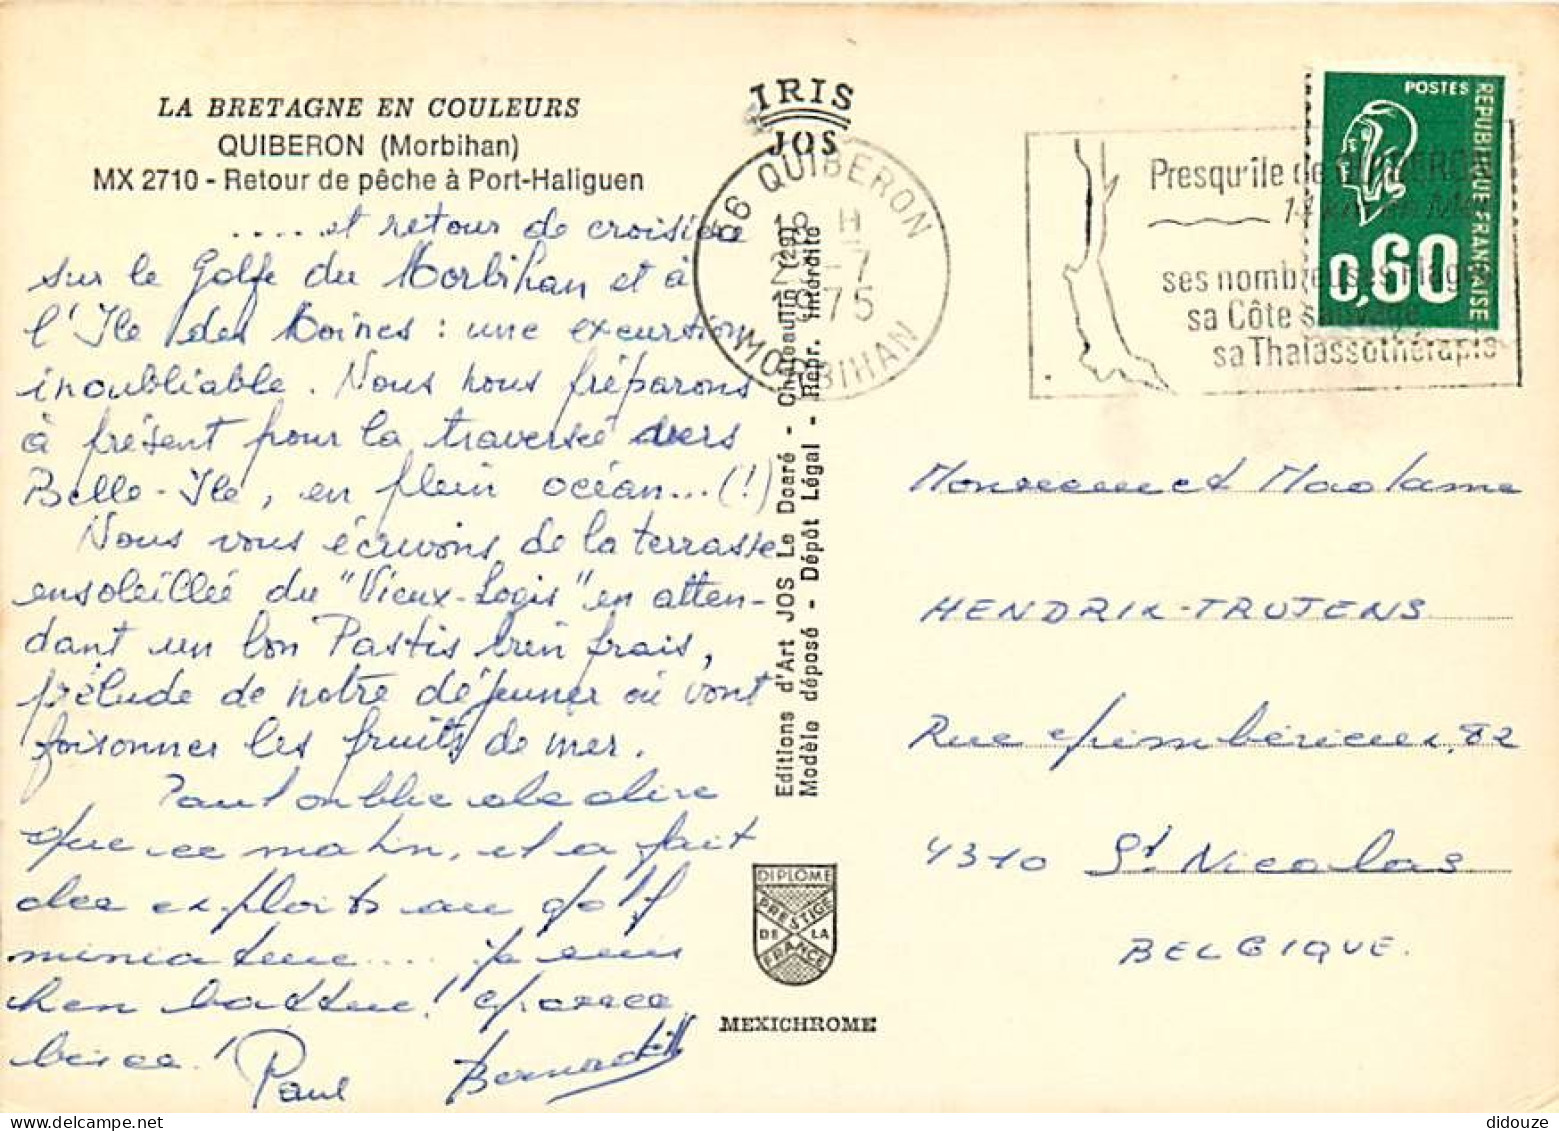 LA BRETAGNE EN COULEURS
QUIBERON (Morbihan)
MX 2710 - Retour de pêche à Port-Haliguen
.... et retour de croisière
sur le Golfe du Morbihan et à
l'Ile des Moines : une excursion
inoubliable. Nous nous préparons
à présent pour la traversée vers
Belle-Ile, en plein océan...(!)
Nous vous écrivons de la terrasse
ensoleillée du "Vieux-Logis" en atten-
dant un bon Pastis bien frais,
prélude de notre déjeuner où vont
foisonner les fruits de mer.
Paul oublie de dire
que ce matin, il a fait
des exploits au golf
miniature.... je suis
bien battue! Grosses
bises!
Paul Bernadette
IRIS
JOS
56 QUIBERON
18 H
-7
1975
MORBIHAN
Editions d'Art JOS Le Doaré - Chateaulin (29)
Modèle déposé - Dépôt Légal - Repr. Interdite
DIPLOME
PRESTIGE
DE LA
FRANCE
MEXICHROME
Presqu'île de QUIBERON
14 km en Mer
ses nombreuses plages
sa Côte sauvage
sa Thalassothérapie
POSTES
REPUBLIQUE FRANÇAISE
0,60
Monsieur et Madame
HENDRIK-TRUJENS
Rue 82
4310 St Nicolas
BELGIQUE.
didouze